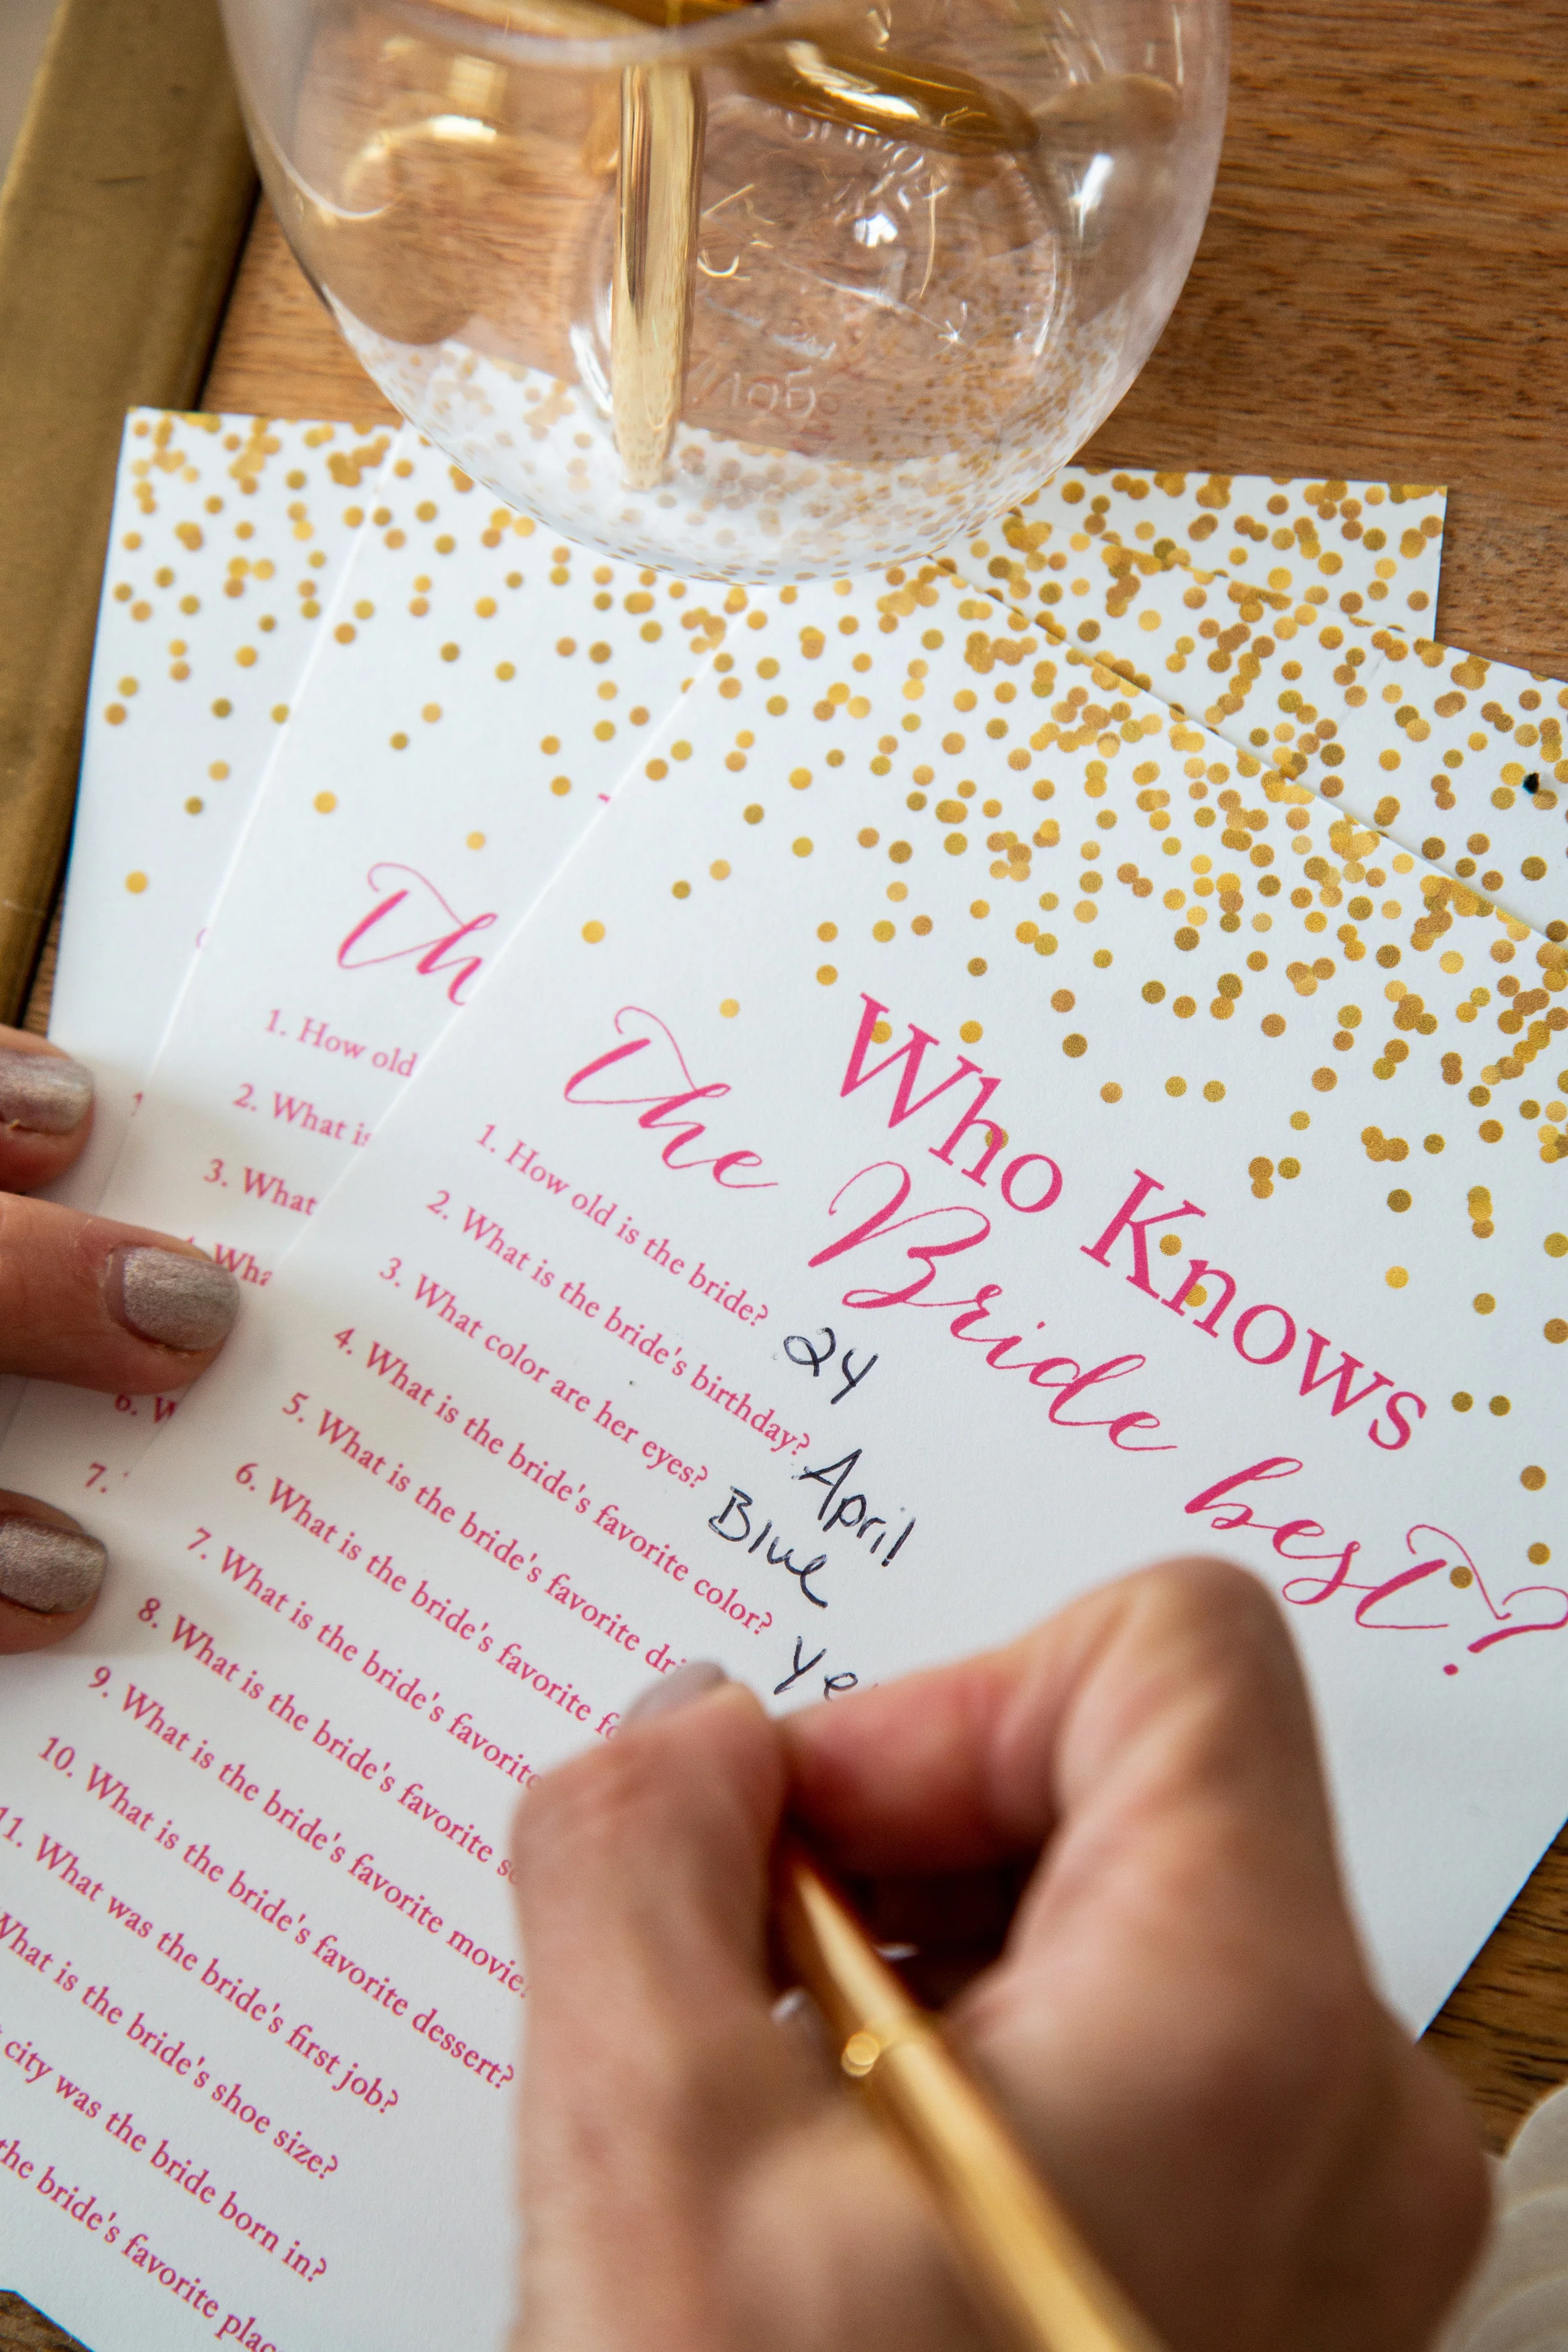 Who Knows
The Bride best?
1. How old is the bride? 24
2. What is the bride's birthday? April
3. What color are her eyes? Blue
4. What is the bride's favorite color? Ye
5. What is the bride's favorite
6. What is the bride's favorite
7. What is the bride's favorite
8. What is the bride's favorite
9. What is the bride's favorite movie?
10. What is the bride's favorite dessert?
11. What was the bride's first job?
What is the bride's shoe size?
city was the bride born in?
the bride's favorite
Th
1. How old
2. What is
3. What
6.
7.